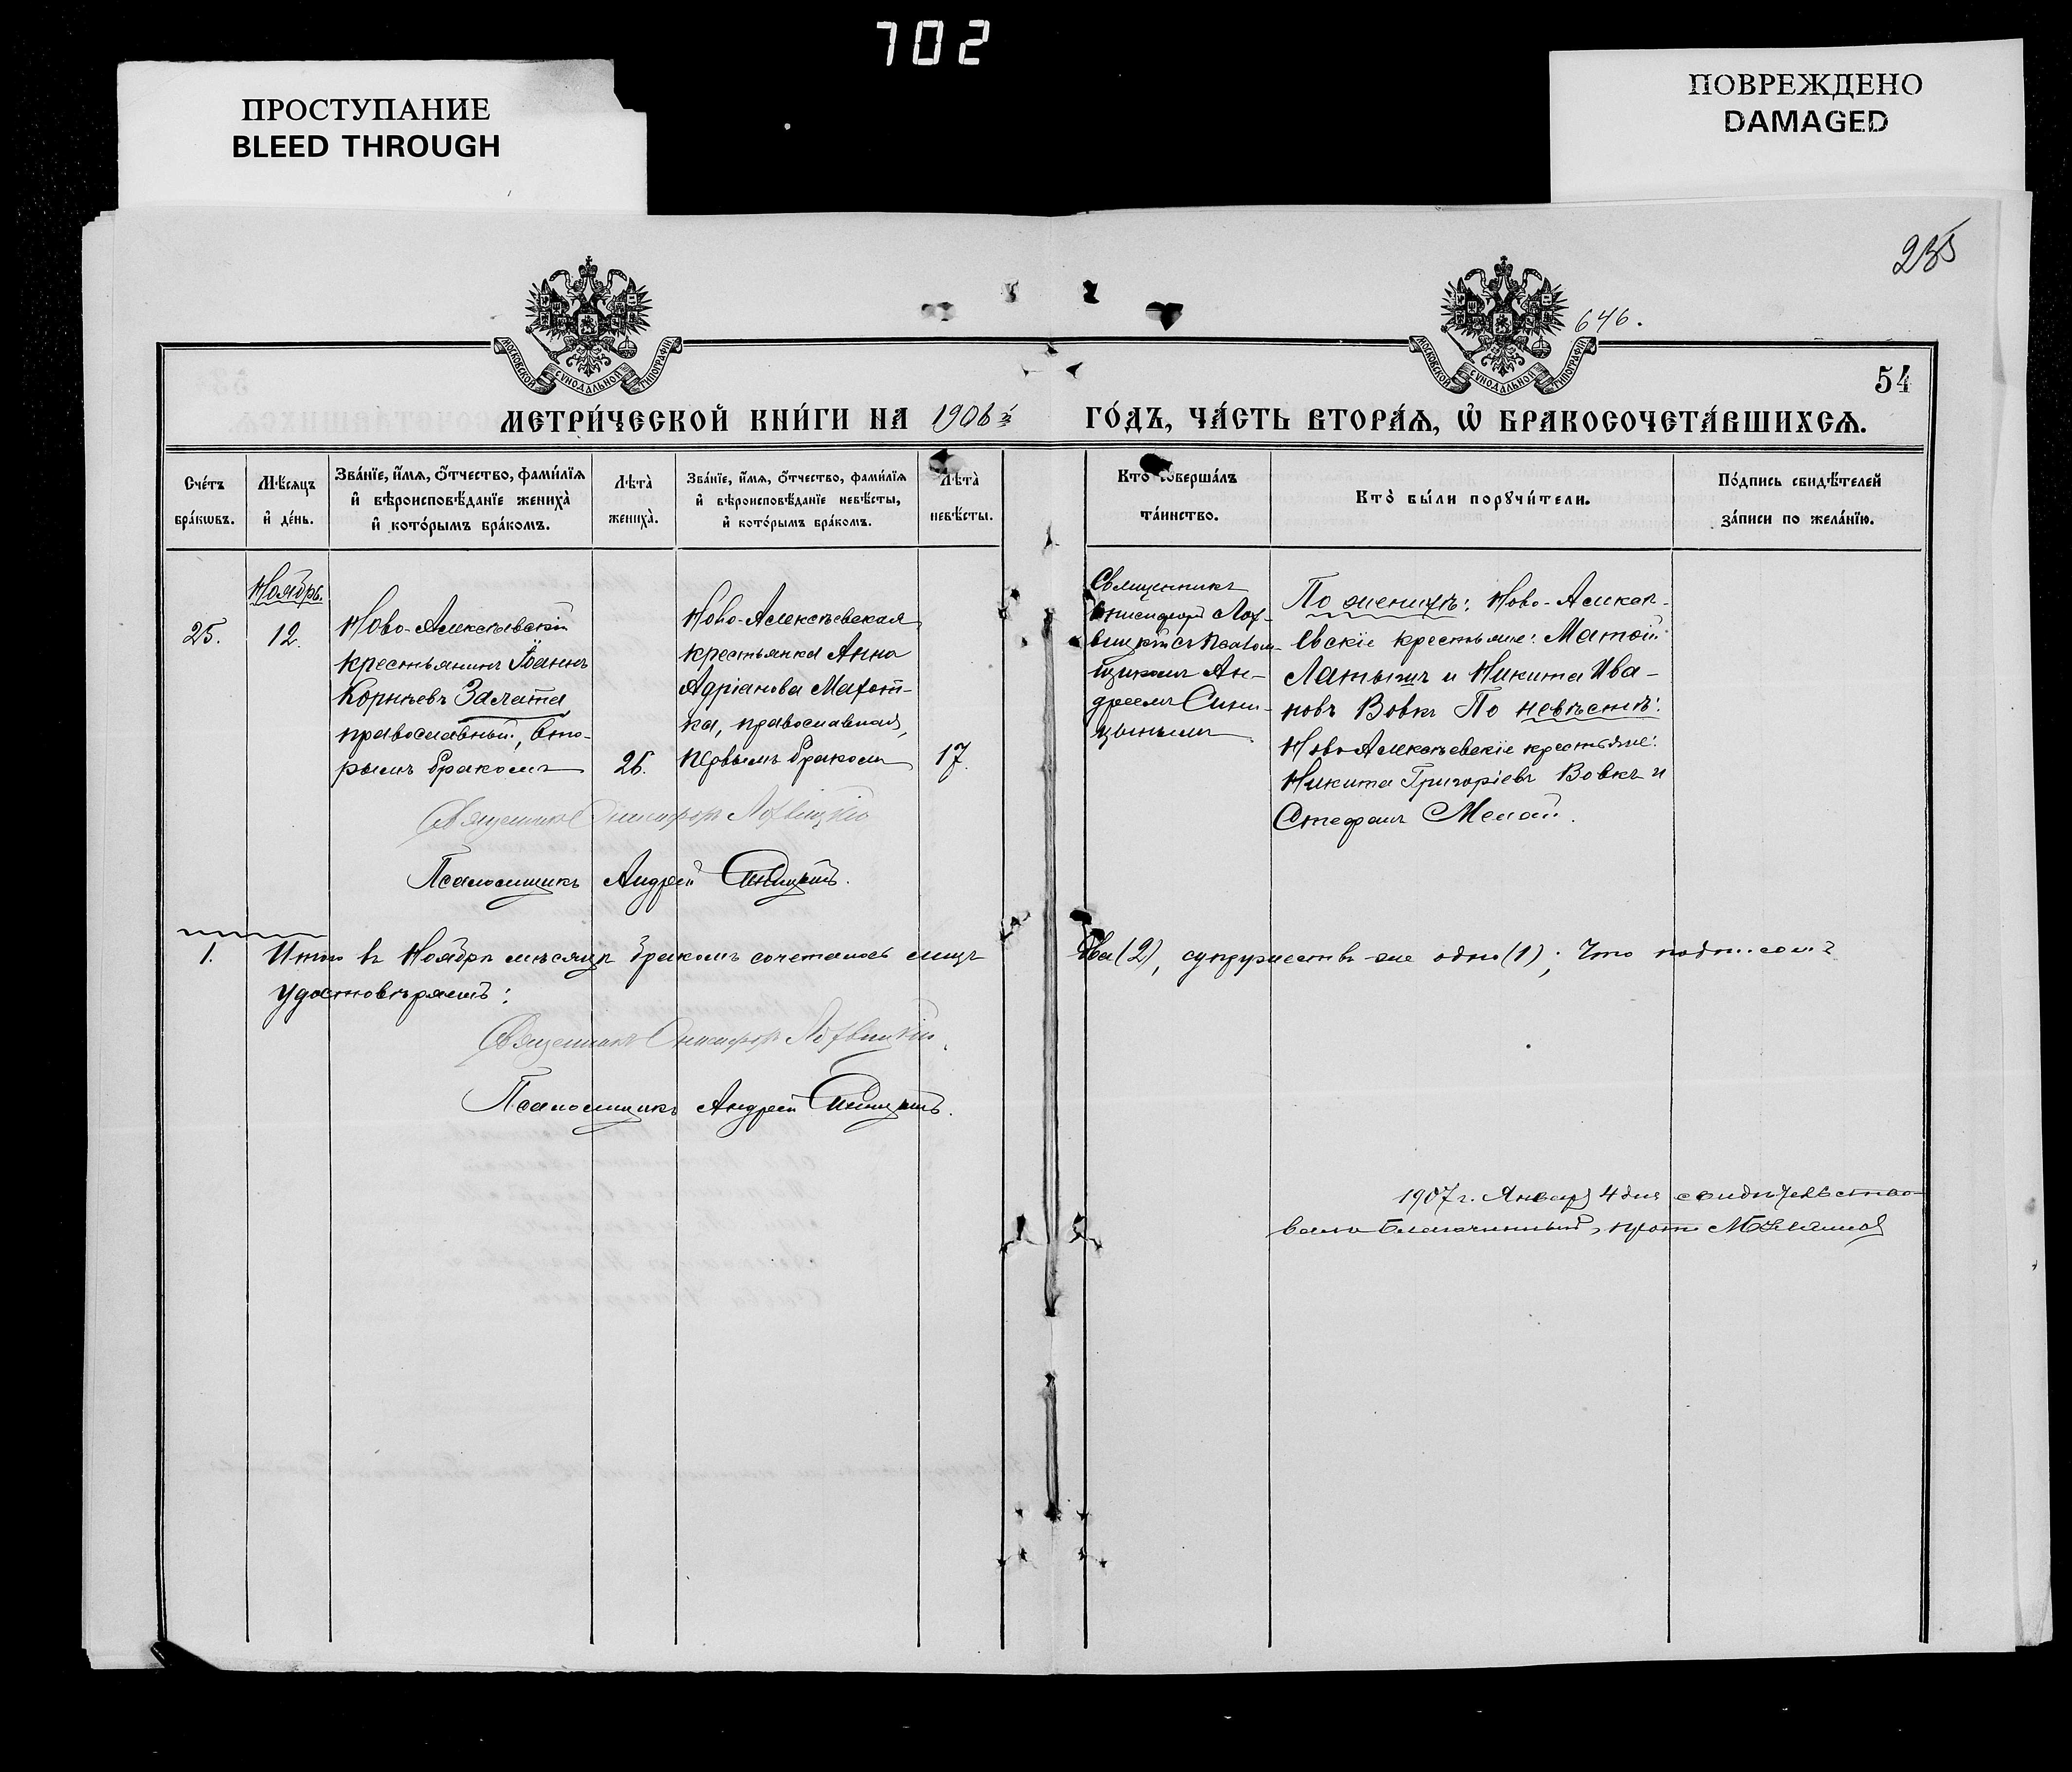 702
ПРОСТУПАНИЕ
BLEED THROUGH
ПОВРЕЖДЕНО
DAMAGED
235
646.
МОСКОВСКОЙ СѴНОДАЛЬНОЙ ТИПОГРАФІИ
МОСКОВСКОЙ СѴНОДАЛЬНОЙ ТИПОГРАФІИ
54
МЕТРИ́ЧЕСКОЙ КНИ́ГИ НА 1906й
ГО́ДЪ, ЧА́СТЬ ВТОРА́Ѧ, Ѡ҆ БРАКОСОЧЕТА́ВШИХСѦ.
Сче́тъ
бра́кѡвъ.
Мѣ́сяцъ
и҆ де́нь.
Зва́нїе, и҆́мѧ, ѻ҆́тчество, фами́лїѧ
и҆ вѣроисповѣ́данїе жениха̀
и҆ кото́рымъ бра́комъ.
Лѣта̀
жениха̀.
Зва́нїе, и҆́мѧ, ѻ҆́тчество, фами́лїѧ
и҆ вѣроисповѣ́данїе невѣ́сты,
и҆ кото́рымъ бра́комъ.
Лѣта̀
невѣ́сты.
Кто̀ соверша́лъ
та́инство.
Кто̀ бы́ли порꙋчи́тели.
По́дпись свидѣ́телей
за́писи по жела́нїю.
25.
Ноябрь.
12.
Ново-Алексѣевскій
крестьянинъ Іоаннъ
Корнѣевъ Залата,
православный, вто-
рымъ бракомъ
26.
Ново-Алексѣевская
крестьянка Анна
Адріанова Махот-
ка, православная,
первымъ бракомъ
17.
Священникъ
Онисифоръ Лох-
вицкій съ псалом-
щикомъ Ан-
дреемъ Сини-
цынымъ
По женихѣ: Ново-Алексѣ-
евскіе крестьяне: Матѳій
Латышъ и Никита Ива-
новъ Вовкъ По невѣстѣ:
Ново Алексѣевскіе крестьяне:
Никита Григоріевъ Вовкъ и
Стефанъ
Священникъ Онисифоръ Лохвицкій
Псаломщикъ Андрей Синицынъ.
1. Итого въ Ноябрѣ мѣсяцѣ бракомъ сочеталось лицъ два (2), супружествъ же одно (1); Что подписомъ
удостовѣряемъ:
Священникъ Онисифоръ Лохвицкій.
Псаломщикъ Андрей Синицынъ.
1907 г. Января 4 дня свидѣтельство-
валъ Благочинный, прот.